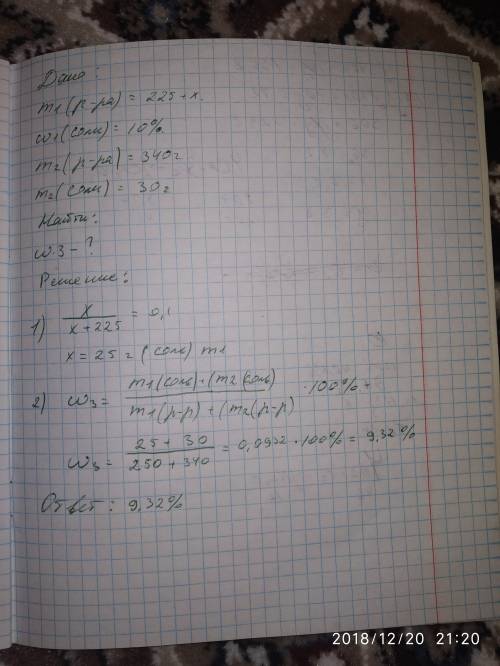 Дано:
m1(р-ра) = 225+x.
ω1(соли) = 10%
m2(р-ра) = 340г
m2(соли) = 30г
Найти:
ω3 - ?
Решение:
1) x / x+225 = 0,1
x = 25г (соль) m1
2) ω3 = m1(соль)+(m2(соль) / m1(р-р) + (m2(р-р) · 100%
ω3 = 25+30 / 250+340 = 0,0932 · 100% = 9,32%
Ответ: 9,32%
2018/12/20 21:20